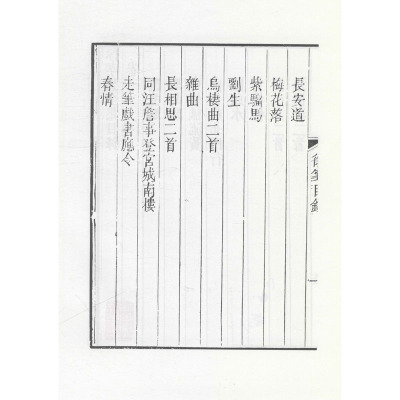 長安道
梅花落
紫騮馬
劉生
烏棲曲二首
雜曲
長相思二首
同江詹事登宮城南樓
走筆戲書應令
春情